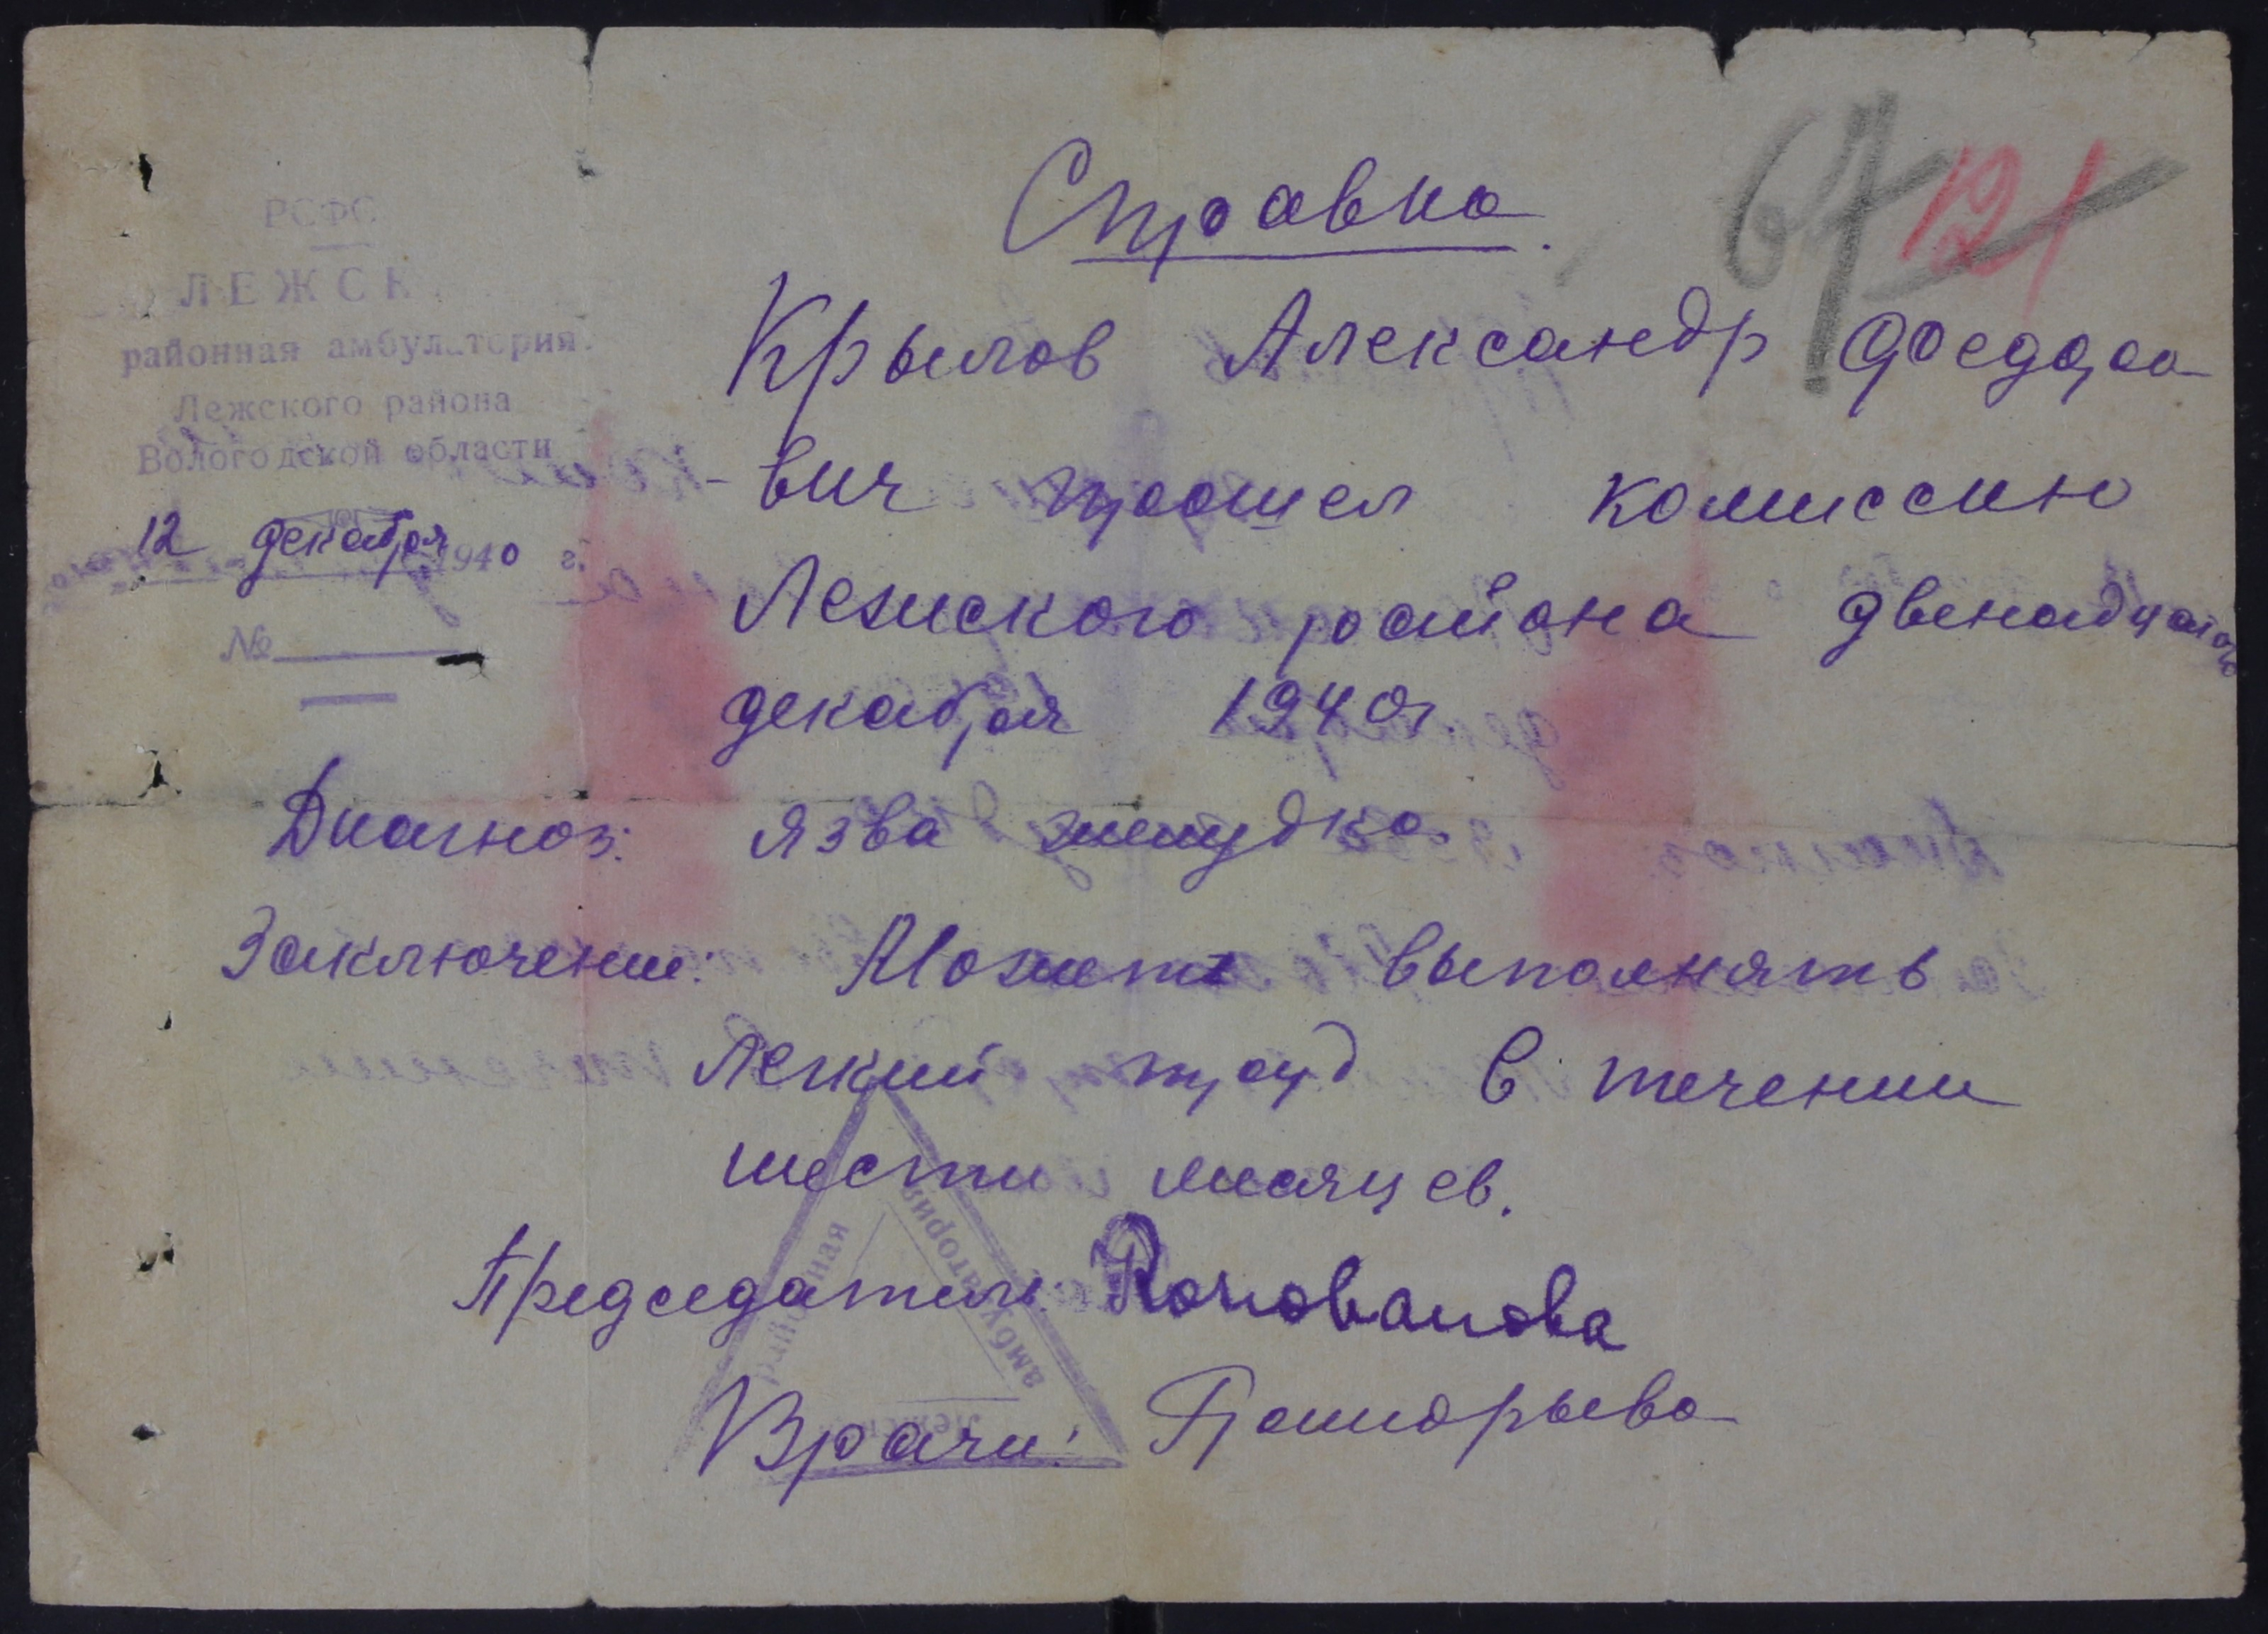 РСФС
ЛЕЖСК
районная амбулатория
Лежского района
Вологодской области
12 декабря 1940 г.
№
67 121
Справка.
Крылов Александр Федоро
-вич прошел комиссию
Лежского района двенадцатого
декабря 1940г.
Диагноз: язва желудка.
Заключение: Может выполнять
легкий труд в течении
шести месяцев.
Председатель:
Врачи:
районная
амбулатория